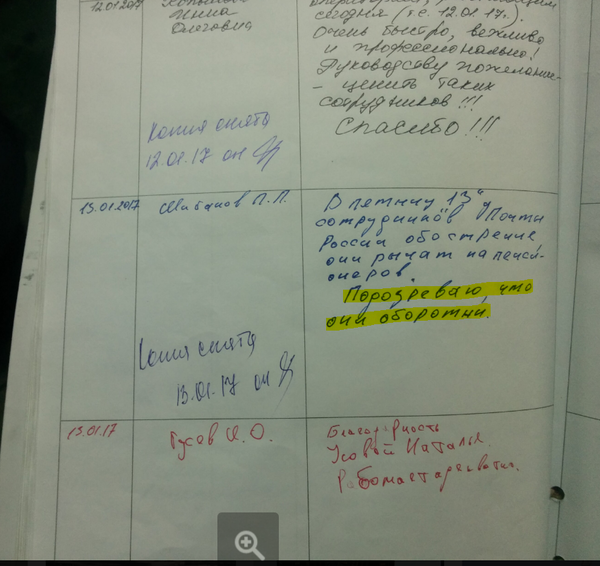 12.01.2017
Инна
Олеговна
сегодня (т.е. 12.01.17.).
Очень быстро, вежливо
и профессионально!
Руководству пожелание
- ценить таких
сотрудников!!!
Спасибо!!!
Копия снята
12.01.17 он
13.01.2017
П.П.
В пятницу 13"
сотрудников "Почты
России обострение
они рычат на пенси-
онеров.
Подозреваю, что
они оборотни.
Копия снята
13.01.17 он
13.01.17
Гусев И.О.
Благодарность
Усовой Наталье.